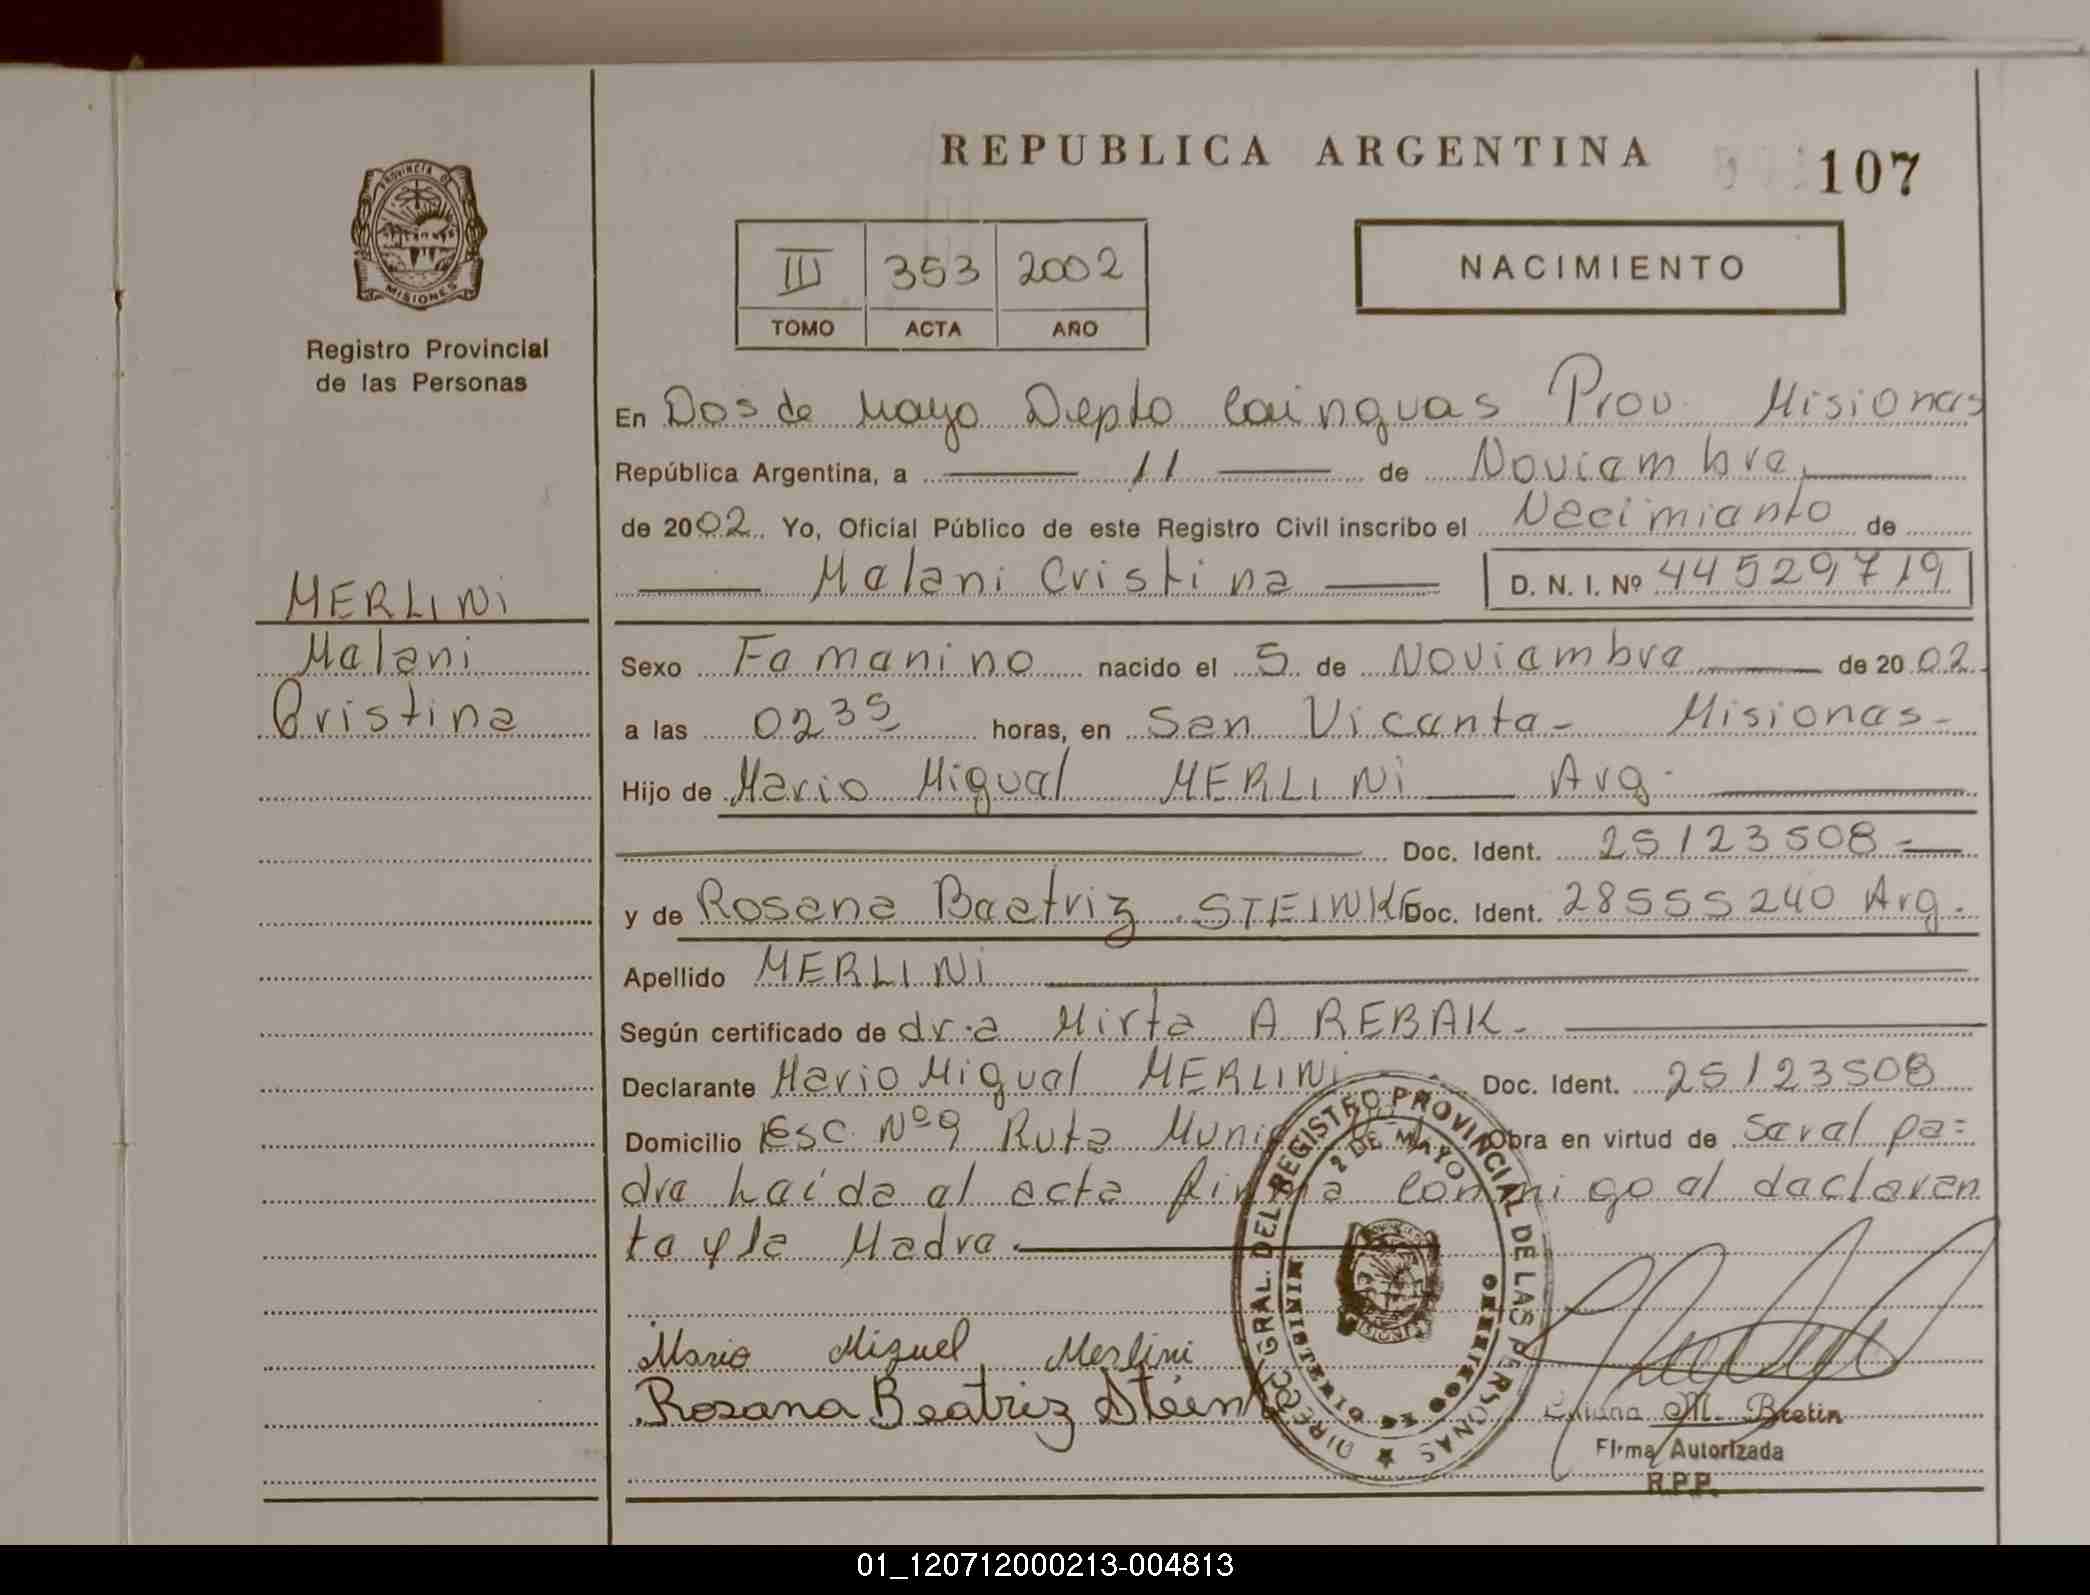 REPUBLICA ARGENTINA
107
PROVINCIA DE
MISIONES
Registro Provincial
de las Personas
III 353 2002
TOMO ACTA AÑO
NACIMIENTO
En Dos de Mayo Depto Cainguas Prov. Misiones
República Argentina, a 11 de Noviembre,
de 2002. Yo, Oficial Público de este Registro Civil inscribo el Nacimiento de
Melani Cristina D. N. I. Nº 44529719
MERLINI
Melani
Cristina
Sexo Femenino nacido el 5 de Noviembre de 2002
a las 0235 horas, en San Vicente - Misiones -
Hijo de Mario Miguel MERLINI Arg.
Doc. Ident. 25123508 -
y de Rosana Beatriz STEINKE Doc. Ident. 28555240 Arg.
Apellido MERLINI
Según certificado de dr.a Mirta A REBAK -
Declarante Mario Miguel MERLINI Doc. Ident. 25123508
Domicilio Esc. Nº 9 Ruta Obra en virtud de Ser el pa=
dre Leída el acta firma conmigo el declaran
te y la Madre.
Mario Miguel Merlini
Rosana Beatriz
DIRECC. GRAL. DEL REGISTRO PROVINCIAL DE LAS PERSONAS
2 DE MAYO
MINISTERIO DE GOBIERNO
MISIONES
M. Bretin
Firma Autorizada
R.P.P.
01_120712000213-004813